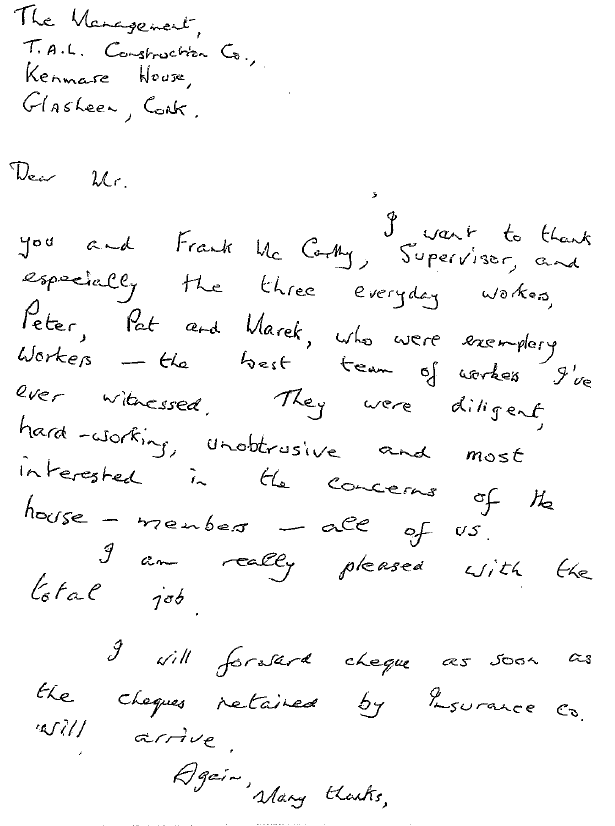 The Management,
T.A.L. Construction Co.,
Kenmare House,
Glasheen, Cork.
Dear Mr.
I want to thank
you and Frank Mc Carthy, Supervisor, and
especially the three everyday workers,
Peter, Pat and Marek, who were exemplary
workers – the best team of workers I've
ever witnessed. They were diligent,
hard-working, unobtrusive and most
interested in the concerns of the
house-members – all of us.
I am really pleased with the
total job.
I will forward cheque as soon as
the cheques retained by Insurance Co.
will arrive.
Again,
Many thanks,